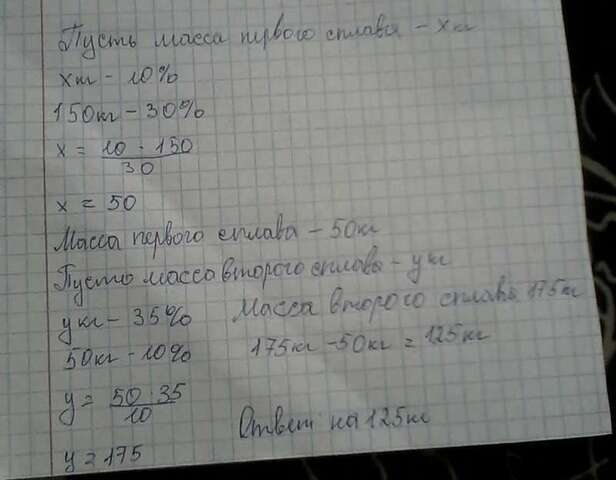 Пусть масса первого сплава - x кг
x кг - 10%
150 кг - 30%
x = 10 · 150 / 30
x = 50
Масса первого сплава - 50 кг
Пусто массо второго сплава - y кг
y кг - 35%
Масса второго сплава 175 кг
50 кг - 10%
175 кг - 50 кг = 125 кг
y = 50 · 35 / 10
Ответ на 125 кг
y = 175